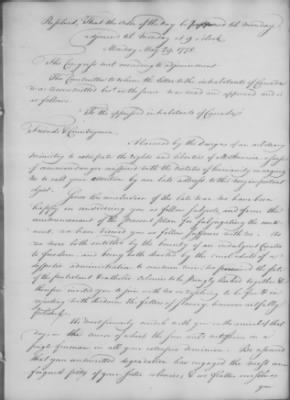 Resolved, That the order of the day be postponed til monday
adjourned til Monday at 9 o'Clock
Monday May 29, 1775
The Congress met according to adjournment
The Committee to whom the letter to the inhabitants of Canada
was recommitted brot in the same was read and approved and is
as follows
To the oppressed inhabitants of Canada
Friends & Countrymen
Alarmed by the designs of an arbitrary
ministry to extirpate the rights and liberties of all America, a sense
of common danger conspired with the dictates of humanity in urging
us to call your attention by our late address to this very important
object.
Since the conclusion of the late war we have been
happy in considering you as fellow subjects, and from the
commencement of the present plan for subjugating the conti-
nent, we have viewed you as fellow sufferers with us. As
we were both entitled by the bounty of an indulgent Creator
to freedom, and being both devoted by the cruel edicts of a
despotic administration to common ruin, we perceived the fate
of the protestant & catholic Colonies to be strongly linked together &
therefore invited you to join with us in resolving to be free & in
rejecting with disdain the fetters of slavery however artfully
polished.
We most sincerely condole with you on the arrival of that
day, in the course of which the sun could not shine on a
single freeman in all your extensive dominion. Be assured
that your unmerited degradation has engaged the most un-
feigned pity of your sister colonies; & we flatter ourselves
you